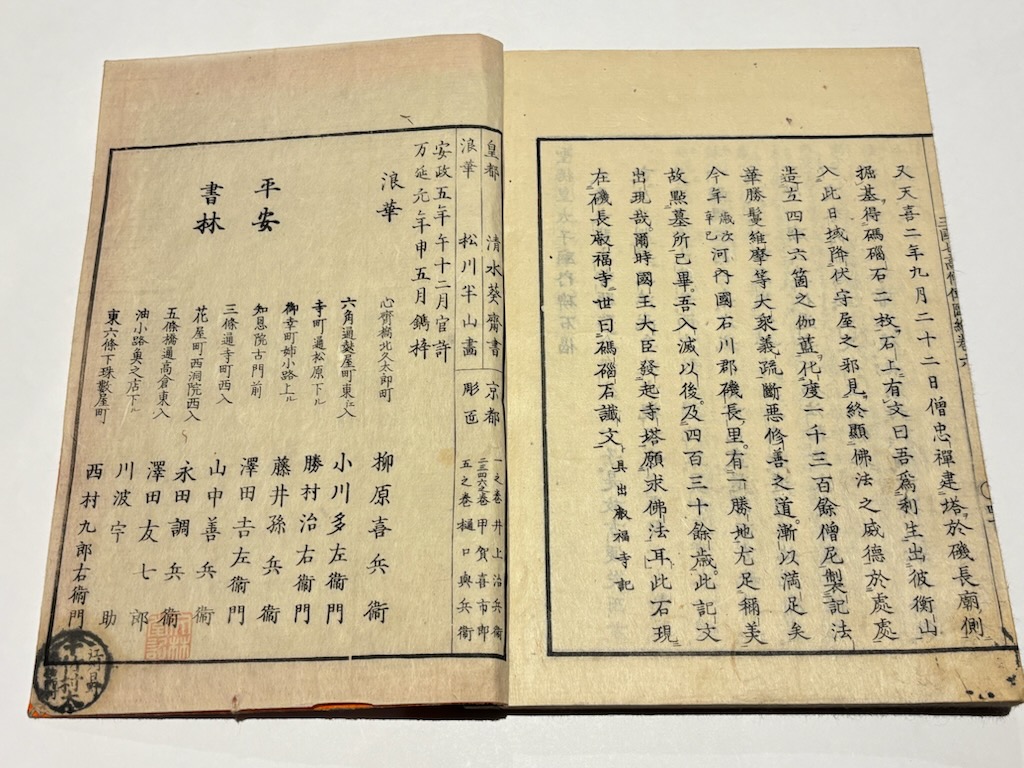 又天喜二年九月二十二日僧忠禪建塔於磯長廟側
掘基得碼碯石二枚石上有文曰吾爲利生出彼衡山
入此日域降伏守屋之邪見終顯佛法之威德於處處
造立四十六箇之伽藍化度一千三百餘僧尼製記法
華勝鬘維摩等大衆義疏斷惡修善之道漸以滿足矣
今年歳次辛巳河内國石川郡磯長里有一勝地尤足稱美
故點墓所已畢吾入滅以後及四百三十餘歳此記文
出現哉爾時國王大臣發起寺塔願求佛法耳此石現
在磯長叡福寺世曰碼碯石讖文 具出叡福寺記
皇都 清水葵齋書
浪華 松川半山畫
京都 彫匠
一之巻 井上治兵衞
二三四六之巻 甲賀喜市郎
五之巻 樋口與兵衞
安政五年午十二月官許
万延元年申五月鐫梓
浪華 心齋橋北久太郎町 柳原喜兵衞
平安
書林
六角通麩屋町東江入 小川多左衞門
寺町通松原下ル 勝村治右衞門
御幸町姉小路上ル 藤井孫兵衞
知恩院古門前 澤田吉左衞門
三條通寺町西入 山中善兵衞
花屋町西洞院西入 永田調兵衞
五條橋通高倉東入 澤田友七郎
油小路魚之店下ル 川波宇助
東六條下珠數屋町 西村九郎右衞門